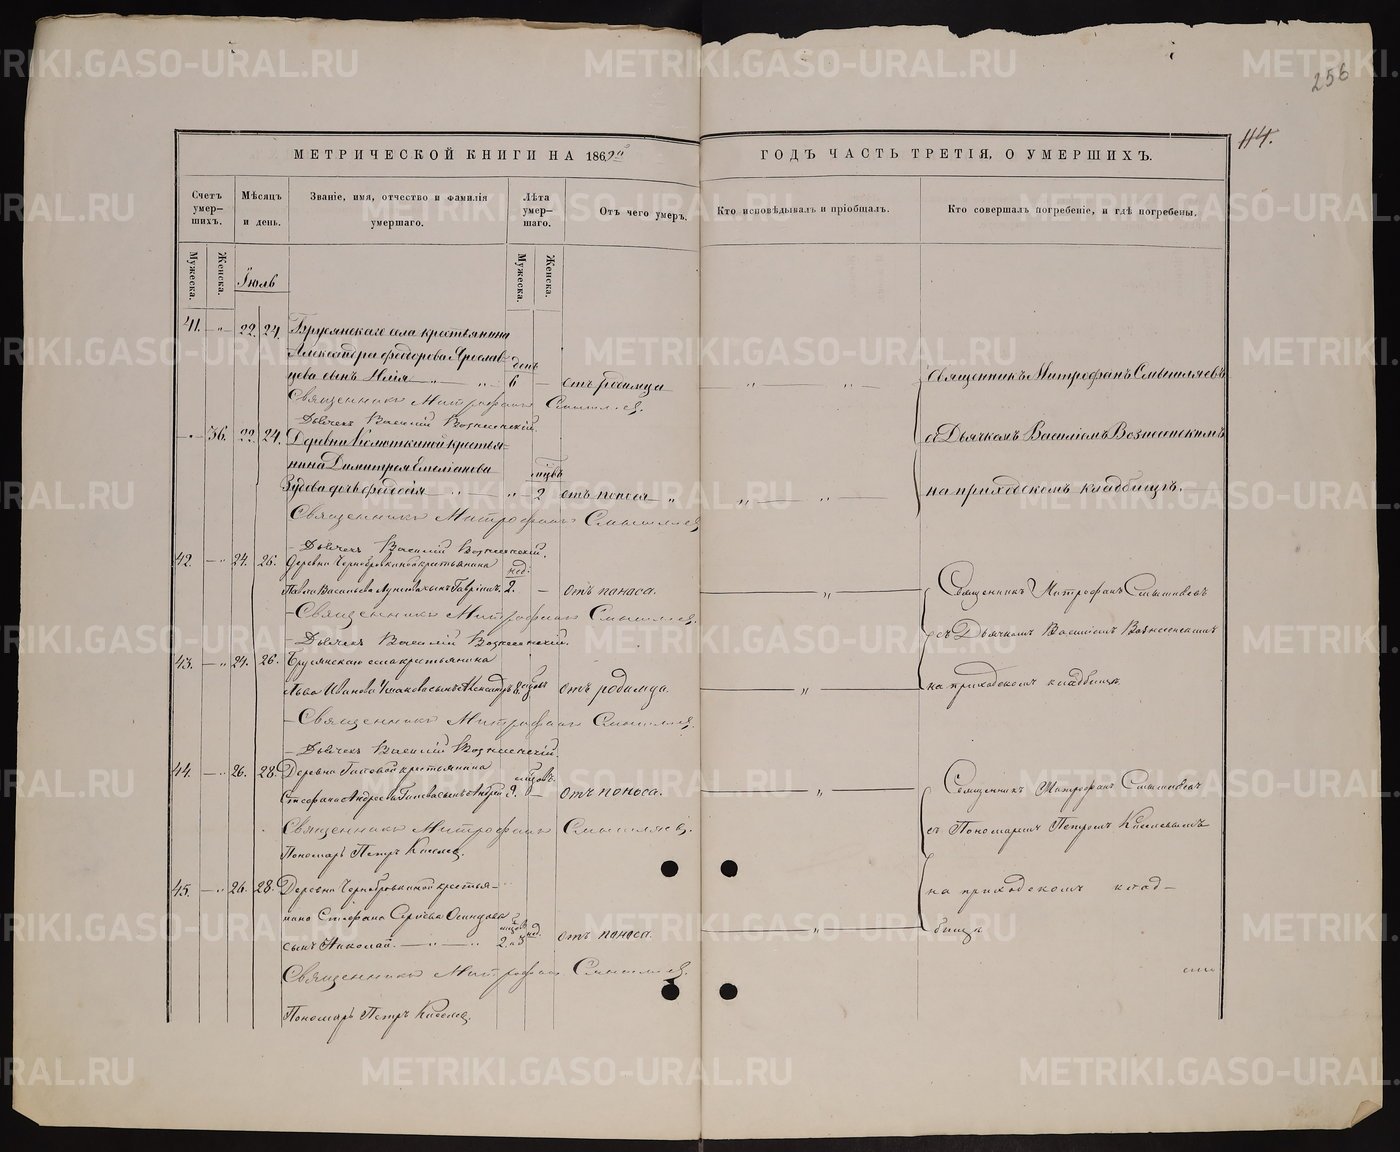 256
114.
МЕТРИЧЕСКОЙ КНИГИ НА 1869й ГОДЪ ЧАСТЬ ТРЕТІЯ, О УМЕРШИХЪ.
Счетъ умер-шихъ.
Мѣсяцъ и день.
Званіе, имя, отчество и фамилія умершаго.
Лѣта умер-шаго.
Отъ чего умеръ.
Кто исповѣдывалъ и пріобщалъ.
Кто совершалъ погребеніе, и гдѣ погребены.
Мужеска.
Женска.
Іюль
Мужеска.
Женска.
41. — „ 22. 24. Брусянскаго села крестьянина
Александра Федорова Ярослав-
цева сынъ Илія — „ — „ день 6 — отъ родимца — „ „ —
Священникъ Митрофанъ Смышляевъ
Дьячекъ Василій Вознесенскій
Священникъ Митрофанъ Смышляевъ
съ Дьячкомъ Василіемъ Вознесенскимъ
на приходскомъ кладбищѣ.
— „ — 36. 22. 24. Деревни Колюткиной крестья-
нина Димитрія Емеліанова
Зуева дочь Феодосія — „ — „ мцвъ 2 отъ поноса „
Священникъ Митрофанъ Смышляевъ
Дьячекъ Василій Вознесенскій.
42. — „ 24. 26. Деревни Чернобровкиной крестьянина
Павла Васильева сынъ Гавріилъ. нед: 2. — отъ поноса. — „ —
Священникъ Митрофанъ Смышляевъ
Дьячекъ Василій Вознесенскій.
Священникъ Митрофанъ Смышляевъ
съ Дьячкомъ Василіемъ Вознесенскимъ
на приходскомъ кладбищѣ
43. — „ 24. 26. Брусянскаго села крестьянина
Льва Иванова Ушакова сынъ Александръ 8 мцовъ отъ родимца. — „ —
Священникъ Митрофанъ Смышляевъ
Дьячекъ Василій Вознесенскій.
44. — „ 26. 28. Деревни Гилевой крестьянина
Стефана Андреева Гилева сынъ Андрей мцовъ 9. — отъ поноса. — „ —
Священникъ Митрофанъ Смышляевъ.
Пономарь Петръ Киселевъ.
Священникъ Митрофанъ Смышляевъ
съ Пономаремъ Петромъ Киселевымъ
на приходскомъ клад-
бищѣ
45. — „ 26. 28. Деревни Чернобровкиной крестья-
нина Стефана Сергѣева Осинцова
сынъ Николай. — „ — „ мцов 2. и 3 нед. отъ поноса. — „ —
Священникъ Митрофанъ Смышляевъ
Пономарь Петръ Киселевъ.
METRIKI.GASO-URAL.RU